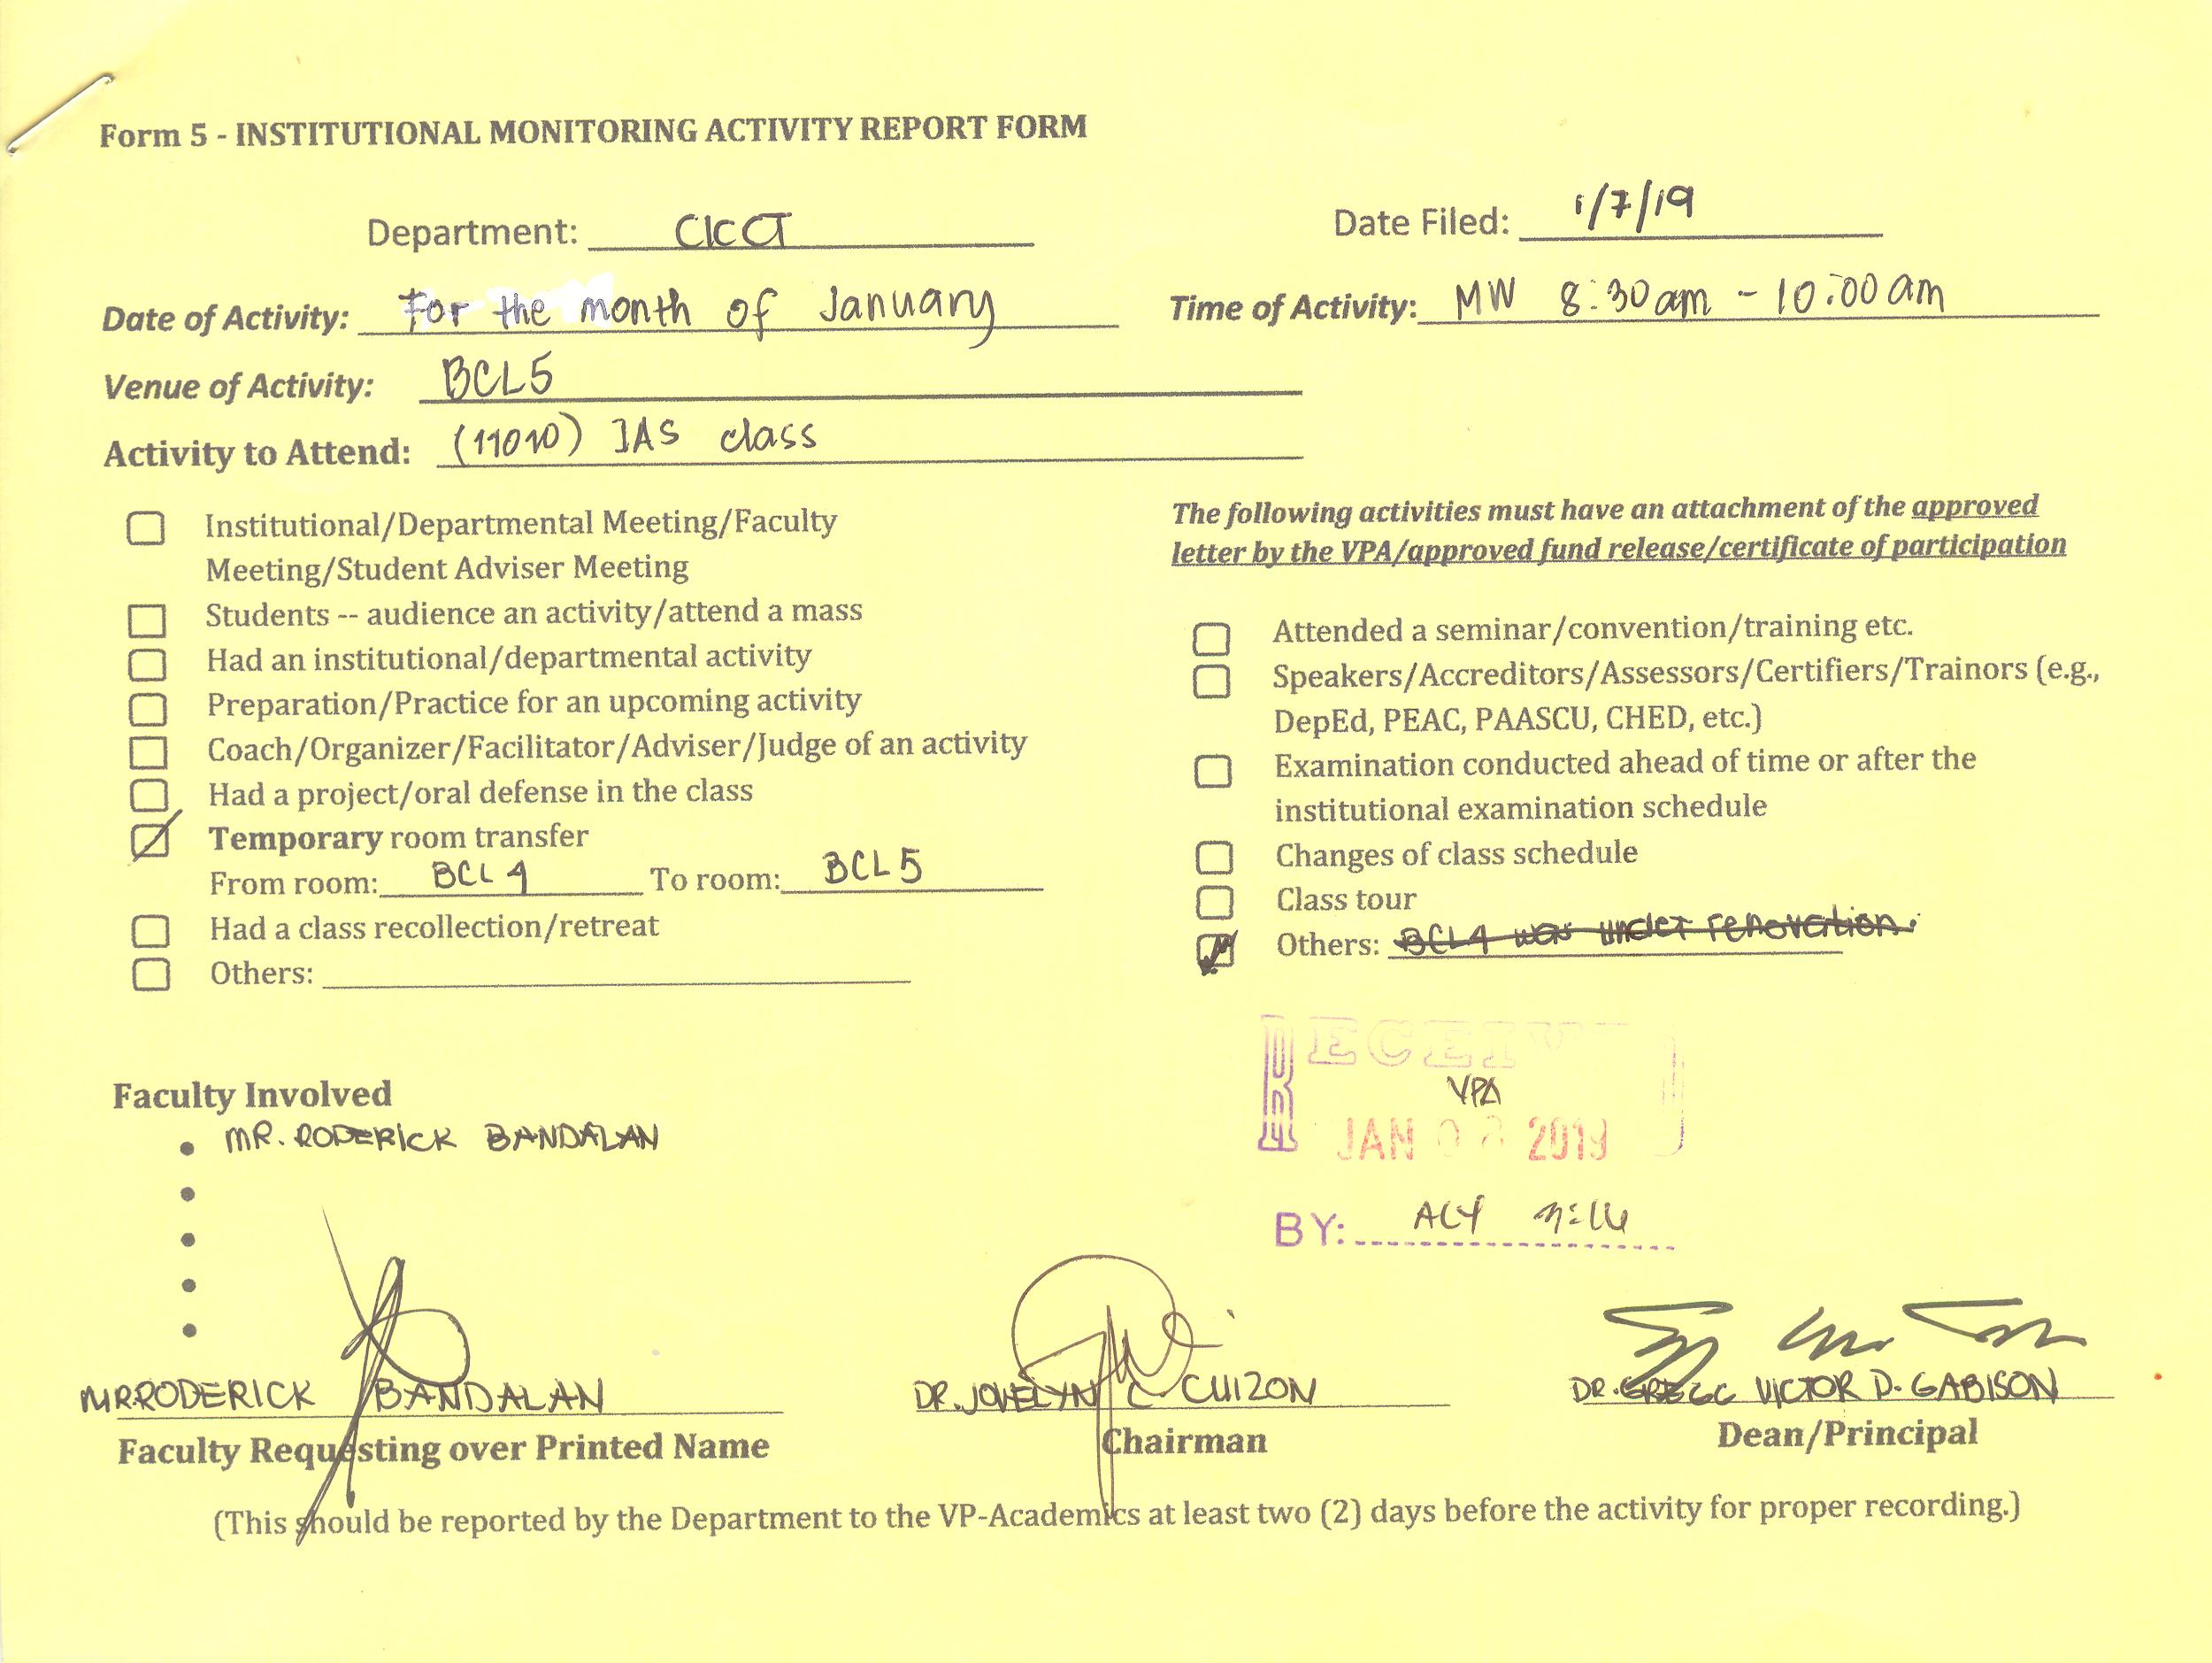 Form 5 - INSTITUTIONAL MONITORING ACTIVITY REPORT FORM
Department: CICCT
Date Filed: 1/7/19
Date of Activity: For the month of January
Time of Activity: MW 8:30am - 10:00am
Venue of Activity: BCL5
Activity to Attend: (11010) IAS class
Institutional/Departmental Meeting/Faculty
Meeting/Student Adviser Meeting
Students -- audience an activity/attend a mass
Had an institutional/departmental activity
Preparation/Practice for an upcoming activity
Coach/Organizer/Facilitator/Adviser/Judge of an activity
Had a project/oral defense in the class
Temporary room transfer
From room: BCL 4 To room: BCL5
Had a class recollection/retreat
Others:
The following activities must have an attachment of the approved
letter by the VPA/approved fund release/certificate of participation
Attended a seminar/convention/training etc.
Speakers/Accreditors/Assessors/Certifiers/Trainors (e.g.,
DepEd, PEAC, PAASCU, CHED, etc.)
Examination conducted ahead of time or after the
institutional examination schedule
Changes of class schedule
Class tour
Others: BCL4 was under renovation.
Faculty Involved
• MR. RODERICK BANDALAN
•
•
•
•
RECEIV
VPA
JAN 2019
BY: ACY
MR.RODERICK BANDALAN
Faculty Requesting over Printed Name
DR. JOVELYN C CUIZON
Chairman
DR. GREGG VICTOR D. GABISON
Dean/Principal
(This should be reported by the Department to the VP-Academics at least two (2) days before the activity for proper recording.)